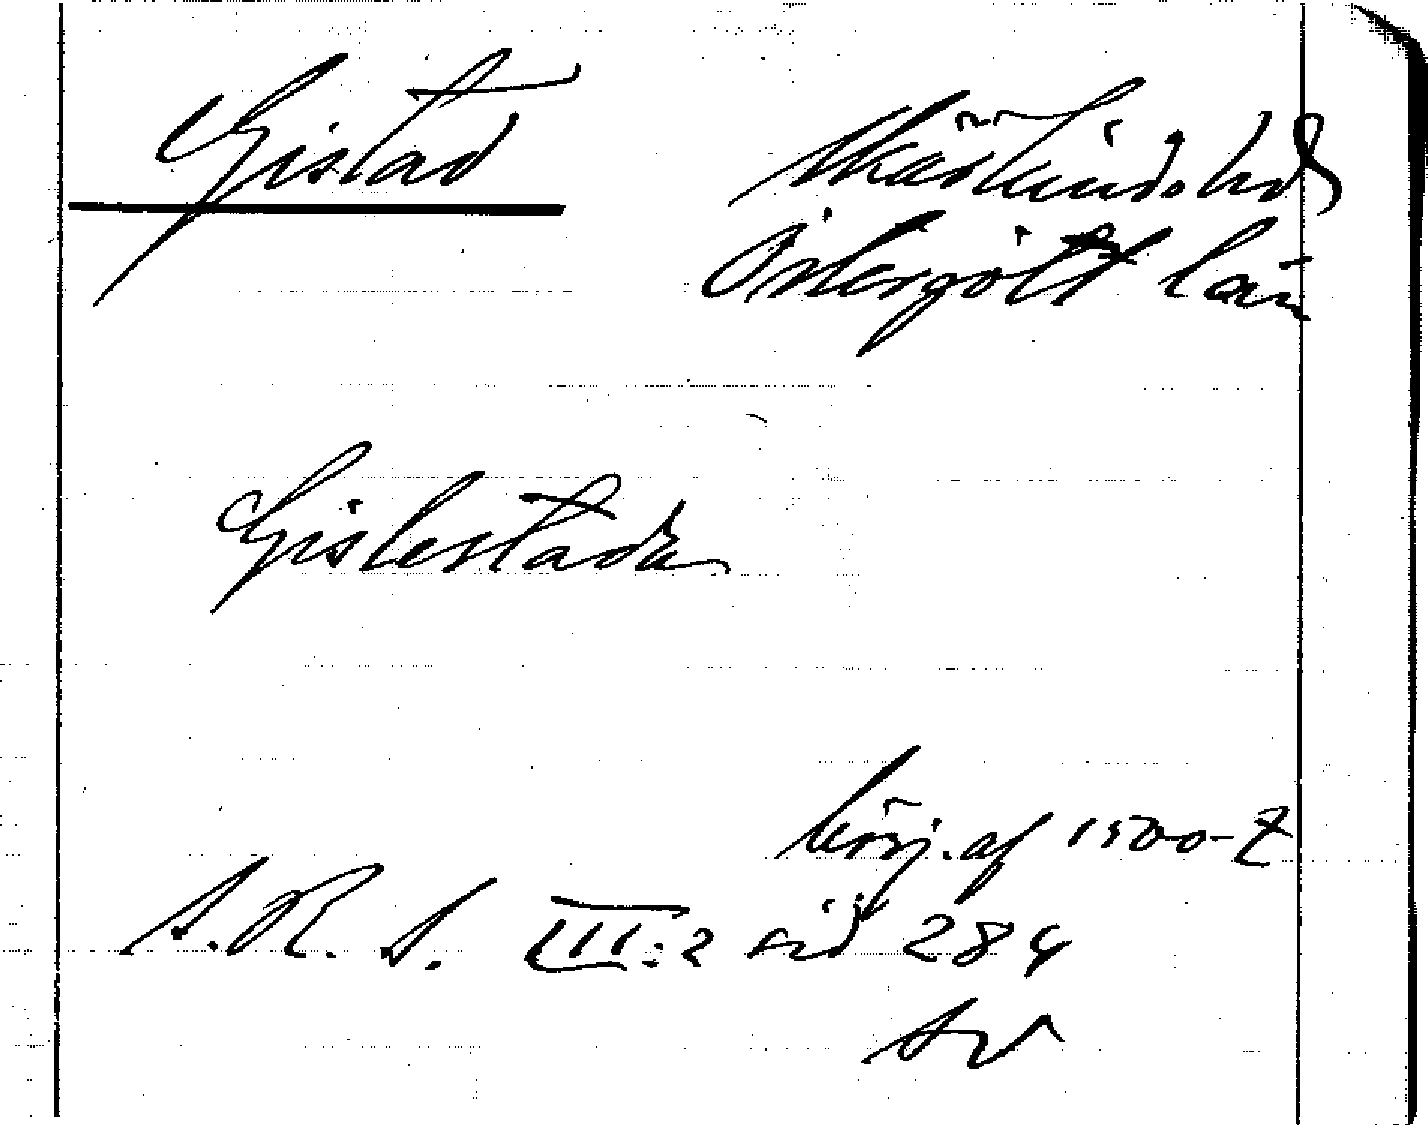 Gistad
Skärkinds hd
Östergötl län
Gislestada
börj. af 1500-t
S. R. S. III:2 sid 284